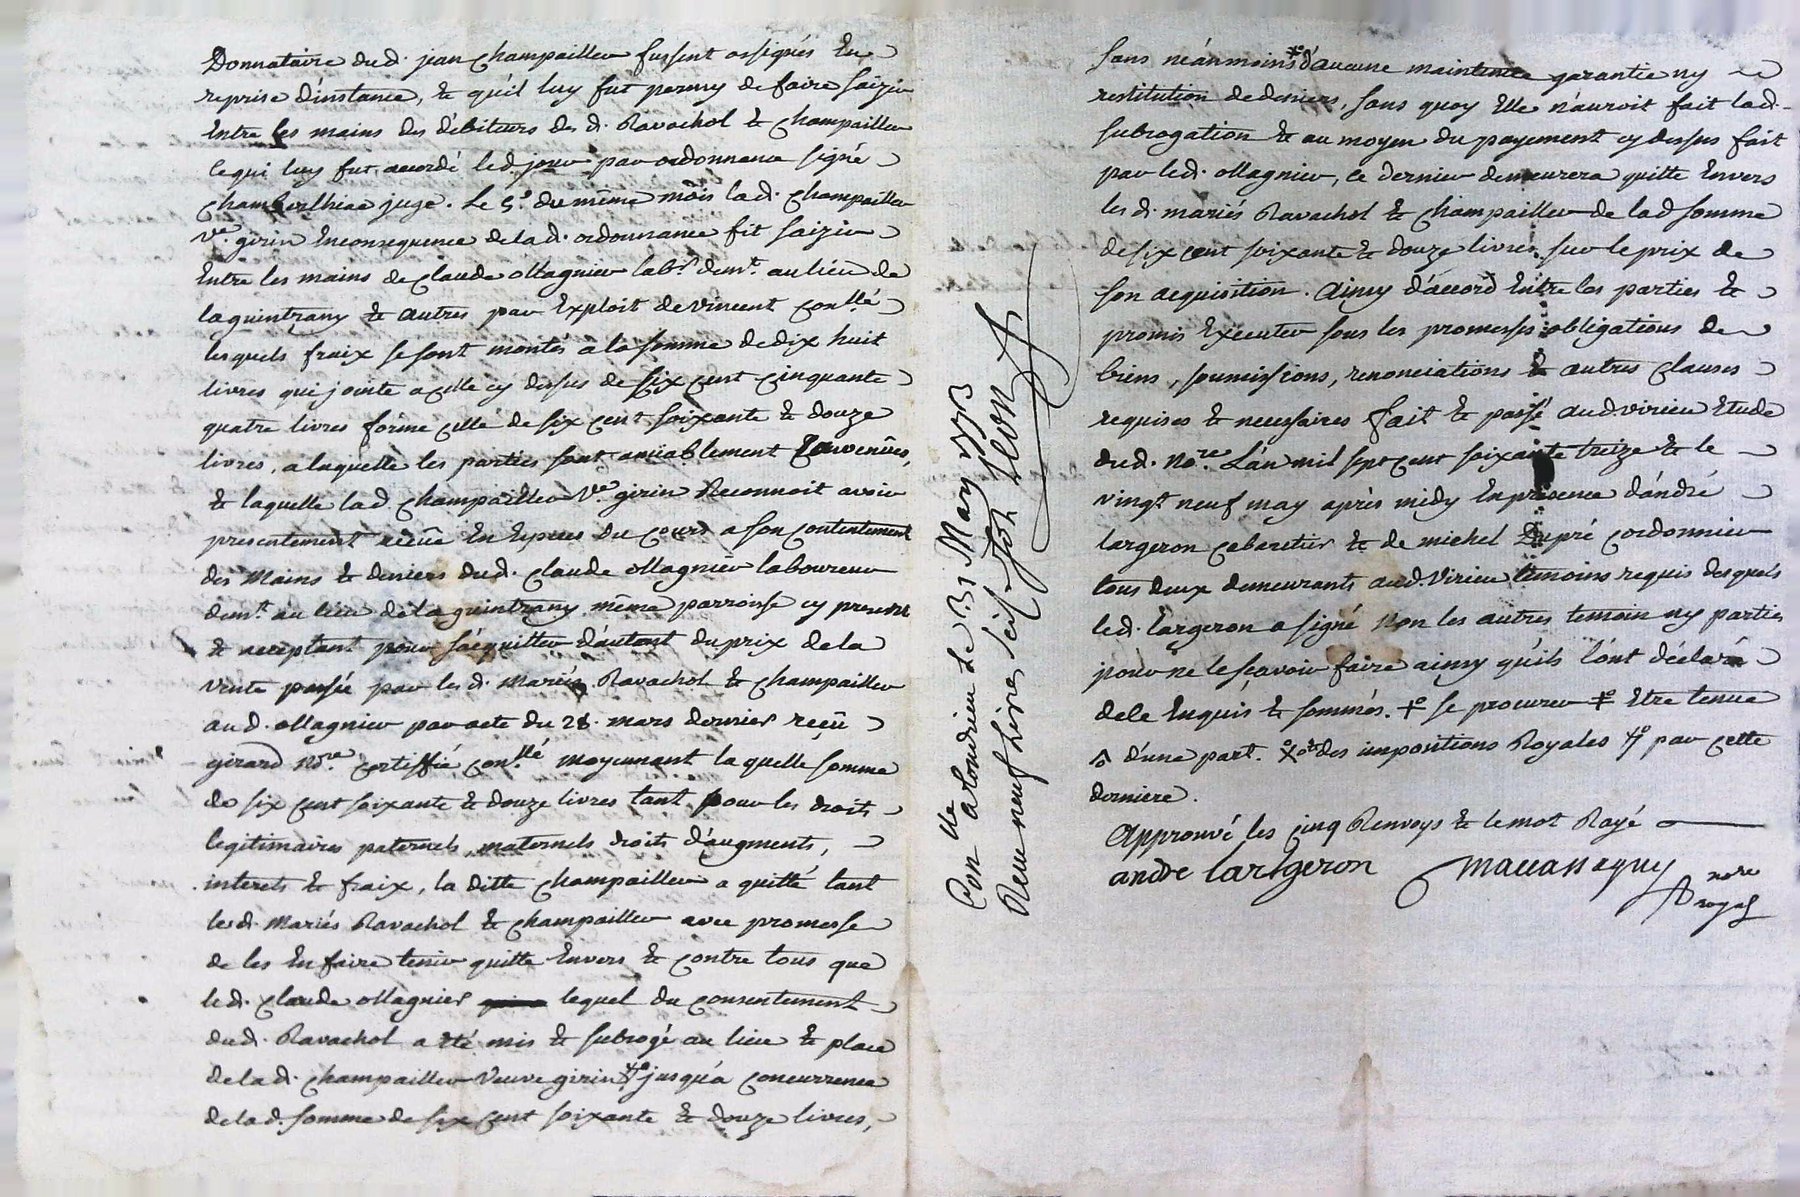 Donnataire dud. jean Champailler fussent assignés En
reprise d'instance, & qu'éil luy fut permy de faire saizir
Entre les mains des débiteurs des d. Ravachol & Champailler
ce qui luy fut accordé led. jour par ordonnance signé
Chambeilhiac juge. Le 5e. du même mois lad. Champailler
Ve. girin Enconsequence de lad. ordonnance fit saizir
Entre les mains de Claude Ollagnier labr. demt. au lieu de
laquintrany & autres par Exploit de vincent conllé
lesquels fraix se sont montés a la somme de dix huit
livres qui jointe a celle cy dessus de six cent cinquante
quatre livres forme celle de six cent soixante & douze
livres, a laquelle les parties sont amiablement Convenües,
& laquelle lad. Champailler Ve. girin Reconnoit avoir
presentement reçüe En Espèces Du Cours a son contentement
des Mains & deniers dud. Claude Ollagnier laboureur
demt. au lieu de la quintrany même parroisse cy present
& acceptant pour s'acquitter d'autant du prix de la
vente passée par les d. Mariés Ravachol & Champailler
aud. Ollagnier par acte du 28. mars dernier reçü
girard Nore. certiffié conllé moyennant la quelle somme
de six cent soixante & douze livres tant pour les droits
legitimaires paternels, maternels droits d'augments,
interets & fraix, la ditte Champailler a quitté tant
les d. Mariés Ravachol & Champailler avec promesse
de les En faire tenir quitte Envers & contre tous que
led. Claude Ollagnier lequel du consentement
dud. Ravachol a été mis & subrogé au lieu & place
de la d. Champailler Veuve girin jusqu'a concurrence
de lad. somme de six cent soixante & douze livres,
Conlle a Condrieu Le 31 May 1773
Reçu neuf livres seif
sans néanmoins d'aucune maintenue garantie ny
restitution de deniers, sans quoy Elle n'auroit fait lad.
subrogation & au moyen du payement cy dessus fait
par led. Ollagnier, ce dernier demeurera quitte Envers
les d. mariés Ravachol & Champailler de lad somme
de six cent soixante & douze livres sur le prix de
son acquisition. Ainsy d'accord Entre les parties &
promis Executer sous les promesses obligations de
biens, soumissions, renonciations & autres clauses
requises & necessaires fait & passé aud virieu Etude
dud. Nore. L'an mil sept cent soixante treize & le
vingt neuf may après midy En presence d'andré
largeron cabaretier & de michel Dupré cordonnier
tous deux demeurants aud. Virieu temoins requis des quels
led. largeron a signé Non les autres temoin ny parties
pour ne le sçavoir faire ainsy qu'ils l'ont déclaré
de le Enquis & sommés. se procurer Etre tenue
d'une part. des impositions Royales par cette
derniere.
Approuvé les cinq Renvoys & le mot Rayé
andre largeron
nore
royal